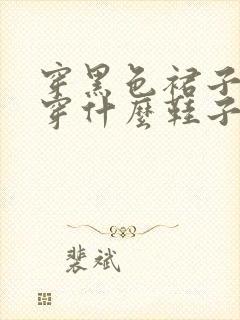 穿黑色裙子
穿什麼鞋子
裴斌